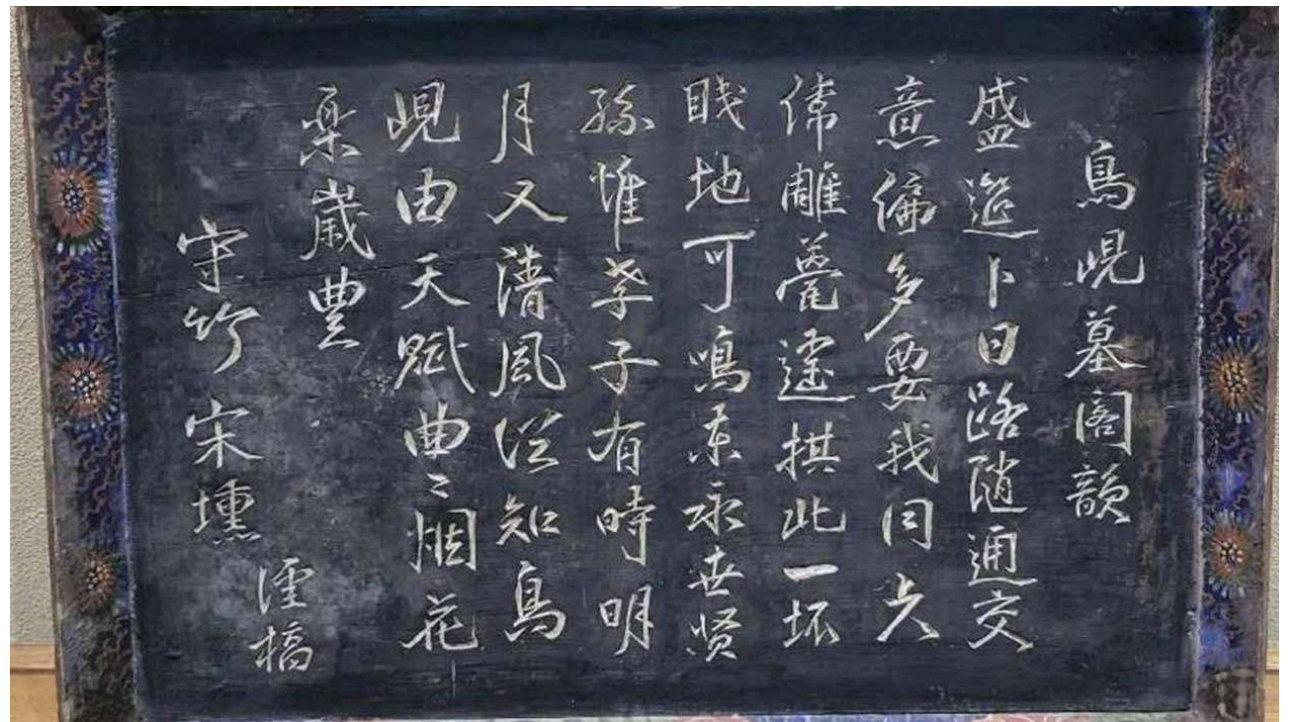 鳥峴墓閣韻
盛筵卜日路隨通交
意偏多要我同六
偉雕甍拱此一坏
賤地可鳴東永世賢
孫惟孝子有時明
月又清風從知鳥
峴由天賦曲〻烟花
樂歲豊
守竹宋壎
橋